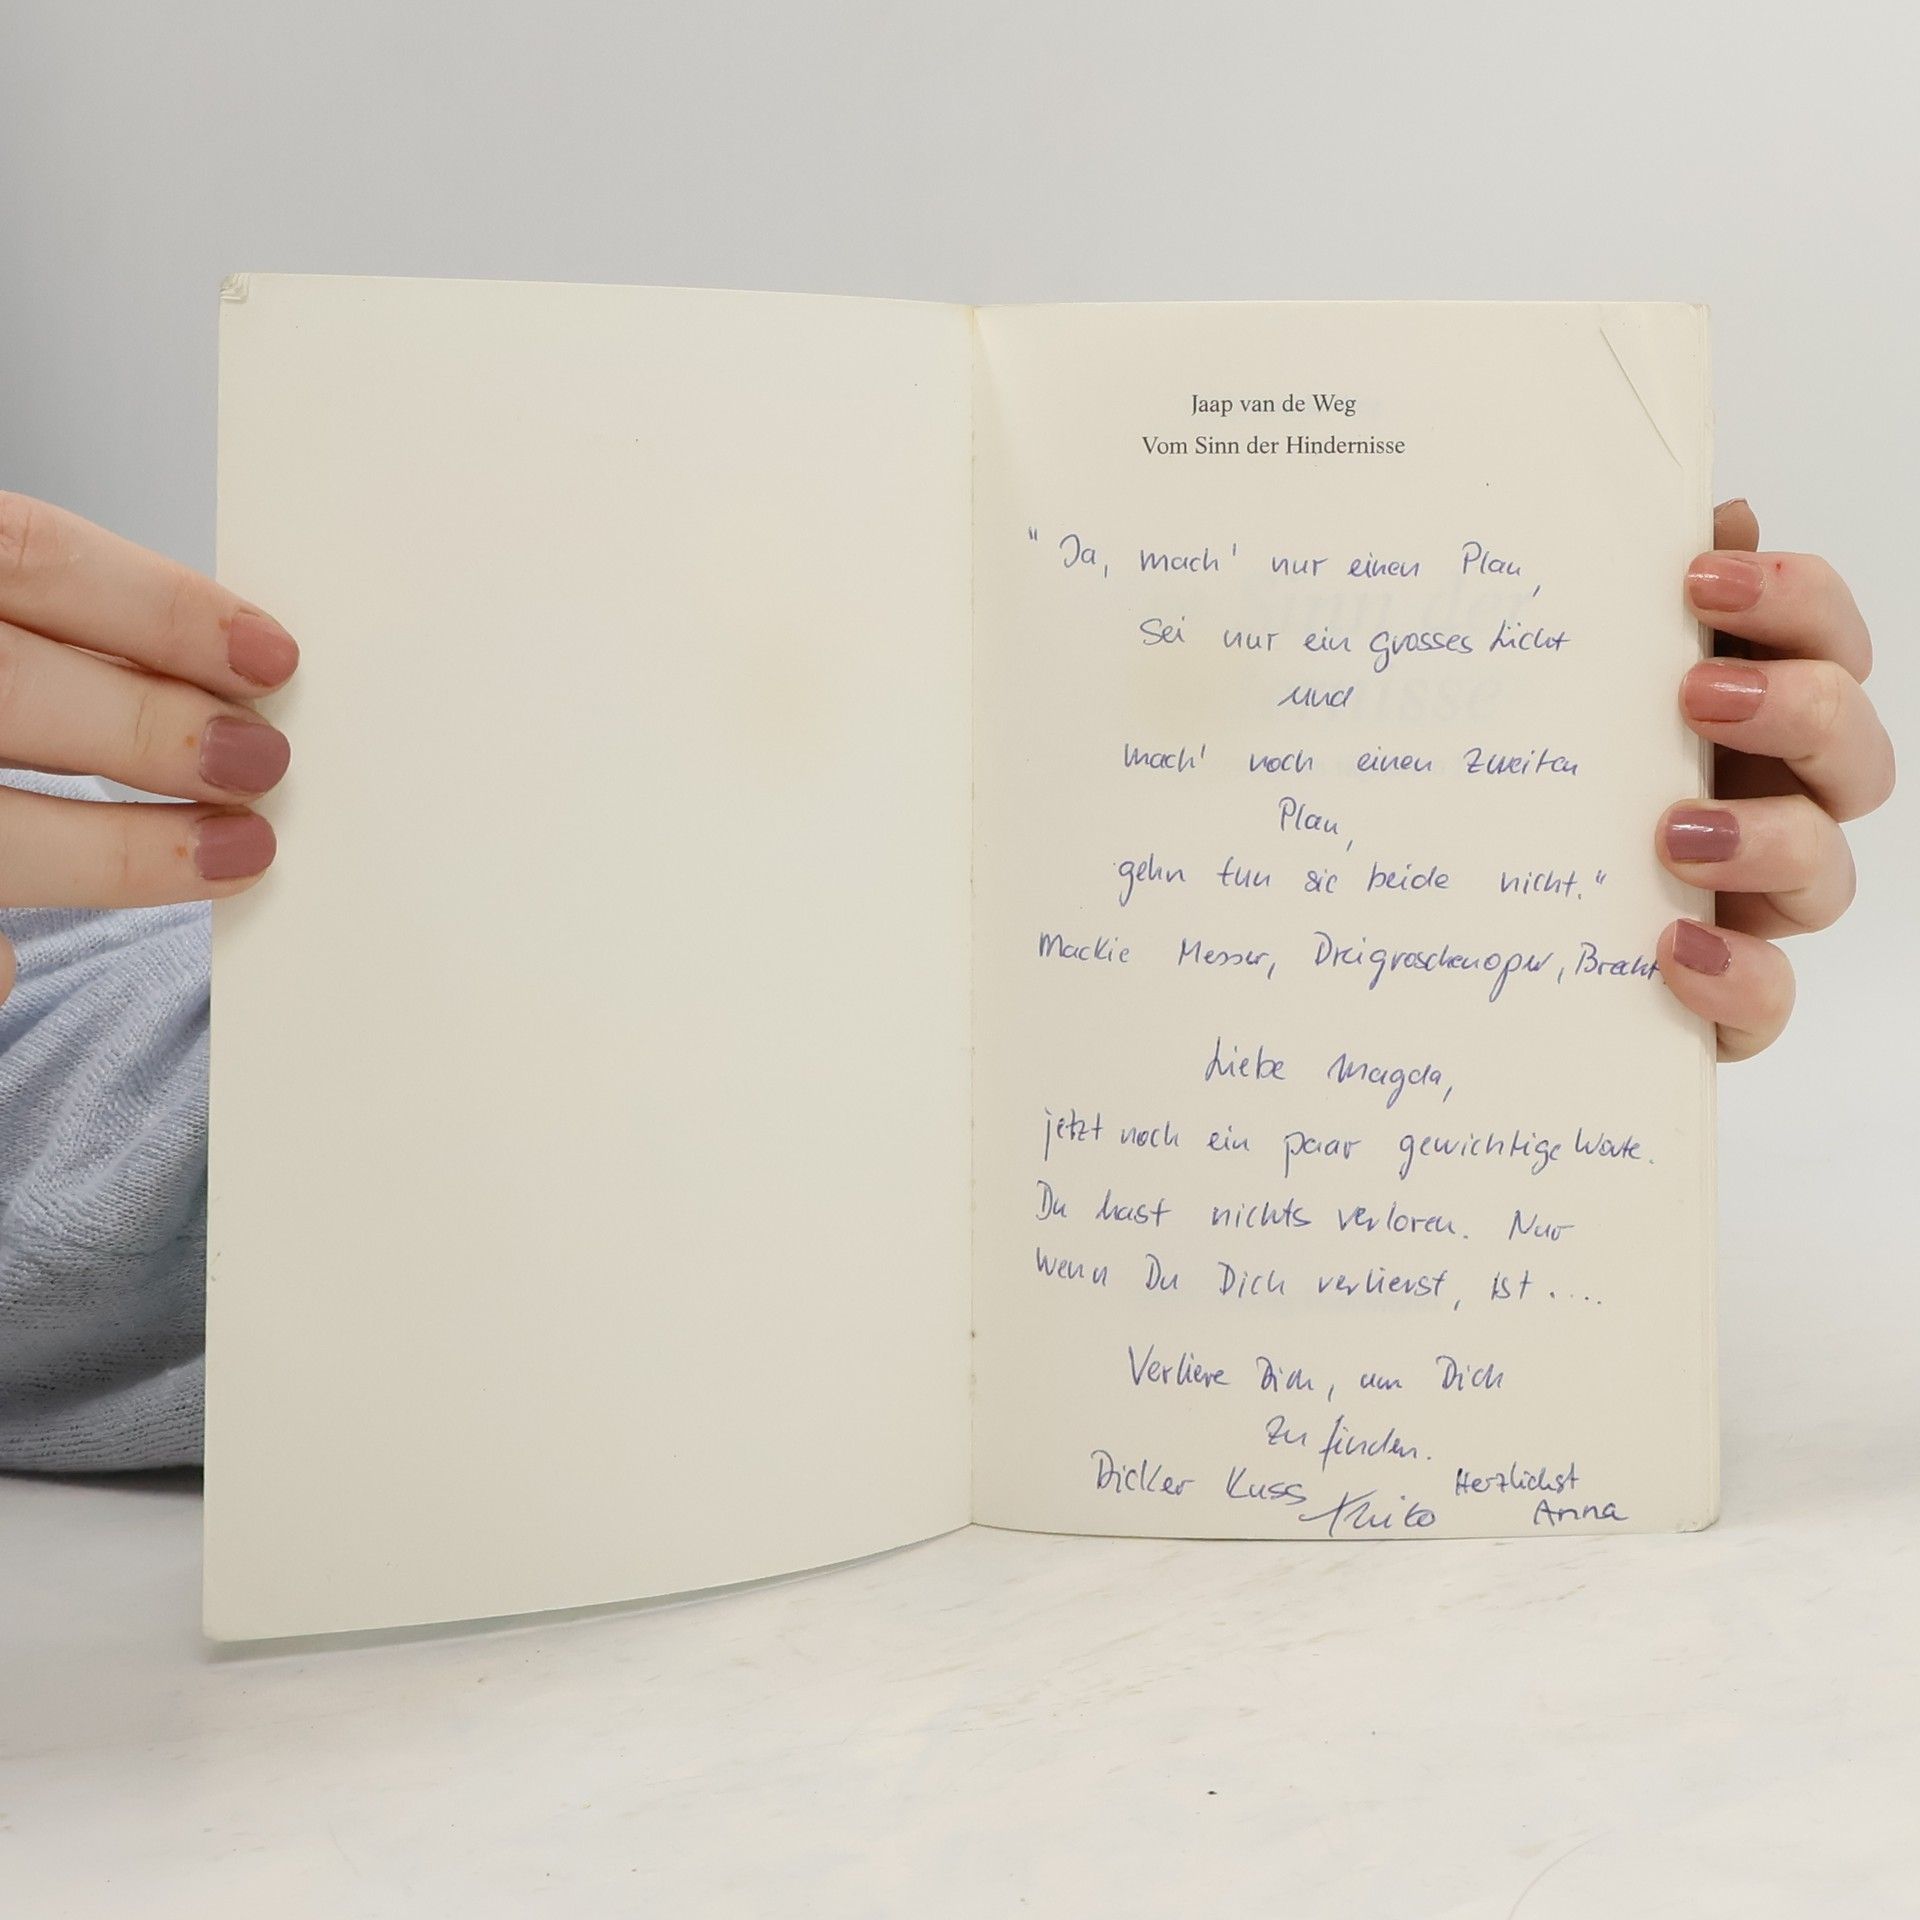 Jaap van de Weg
Vom Sinn der Hindernisse
"Ja, mach' nur einen Plan,
Sei nur ein grosses Licht
und
mach' noch einen zweiten
Plan,
gehn tun sie beide nicht."
Mackie Messer, Dreigroschenoper, Brecht
Liebe Magda,
jetzt noch ein paar gewichtige Worte.
Du hast nichts verloren. Nur
wenn Du Dich verlierst, ist ....
Verliere Dich, um Dich
zu finden.
Dicker Kuss Herzlichst
Anna